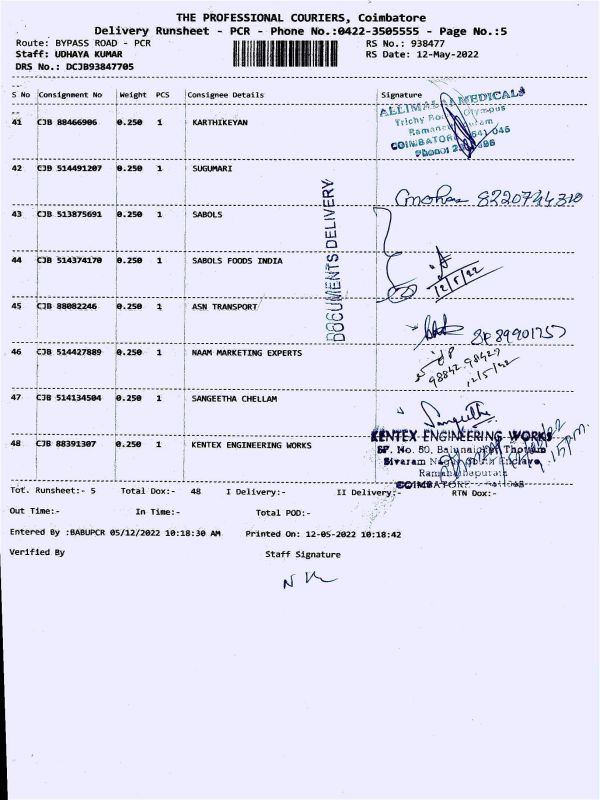 THE PROFESSIONAL COURIERS, Coimbatore
Delivery Runsheet - PCR - Phone No.:0422-3505555 - Page No.:5
Route: BYPASS ROAD - PCR
RS No.: 938477
Staff: UDHAYA KUMAR
RS Date: 12-May-2022
DRS No.: DCJB93847705
S No Consignment No Weight PCS Consignee Details Signature
41 CJB 88466906 0.250 1 KARTHIKEYAN
MEDICALS
Trichy
Olympus
COIMBATORE
42 CJB 514491207 0.250 1 SUGUMARI
8220744310
43 CJB 513875691 0.250 1 SABOLS
DOCUMENTS DELIVERY
44 CJB 514374170 0.250 1 SABOLS FOODS INDIA
12/5/22
45 CJB 88082246 0.250 1 ASN TRANSPORT
46 CJB 514427889 0.250 1 NAAM MARKETING EXPERTS
98842 98427
12/5/22
47 CJB 514134504 0.250 1 SANGEETHA CHELLAM
Sangeetha
48 CJB 88391307 0.250 1 KENTEX ENGINEERING WORKS
KENTEX ENGINEERING WORKS
SF. No. 50,
Sivaram
COIMBATORE
Tot. Runsheet:- 5 Total Dox:- 48 I Delivery:- II Delivery:- RTN Dox:-
Out Time:- In Time:- Total POD:-
Entered By :BABUPCR 05/12/2022 10:18:30 AM Printed On: 12-05-2022 10:18:42
Verified By Staff Signature